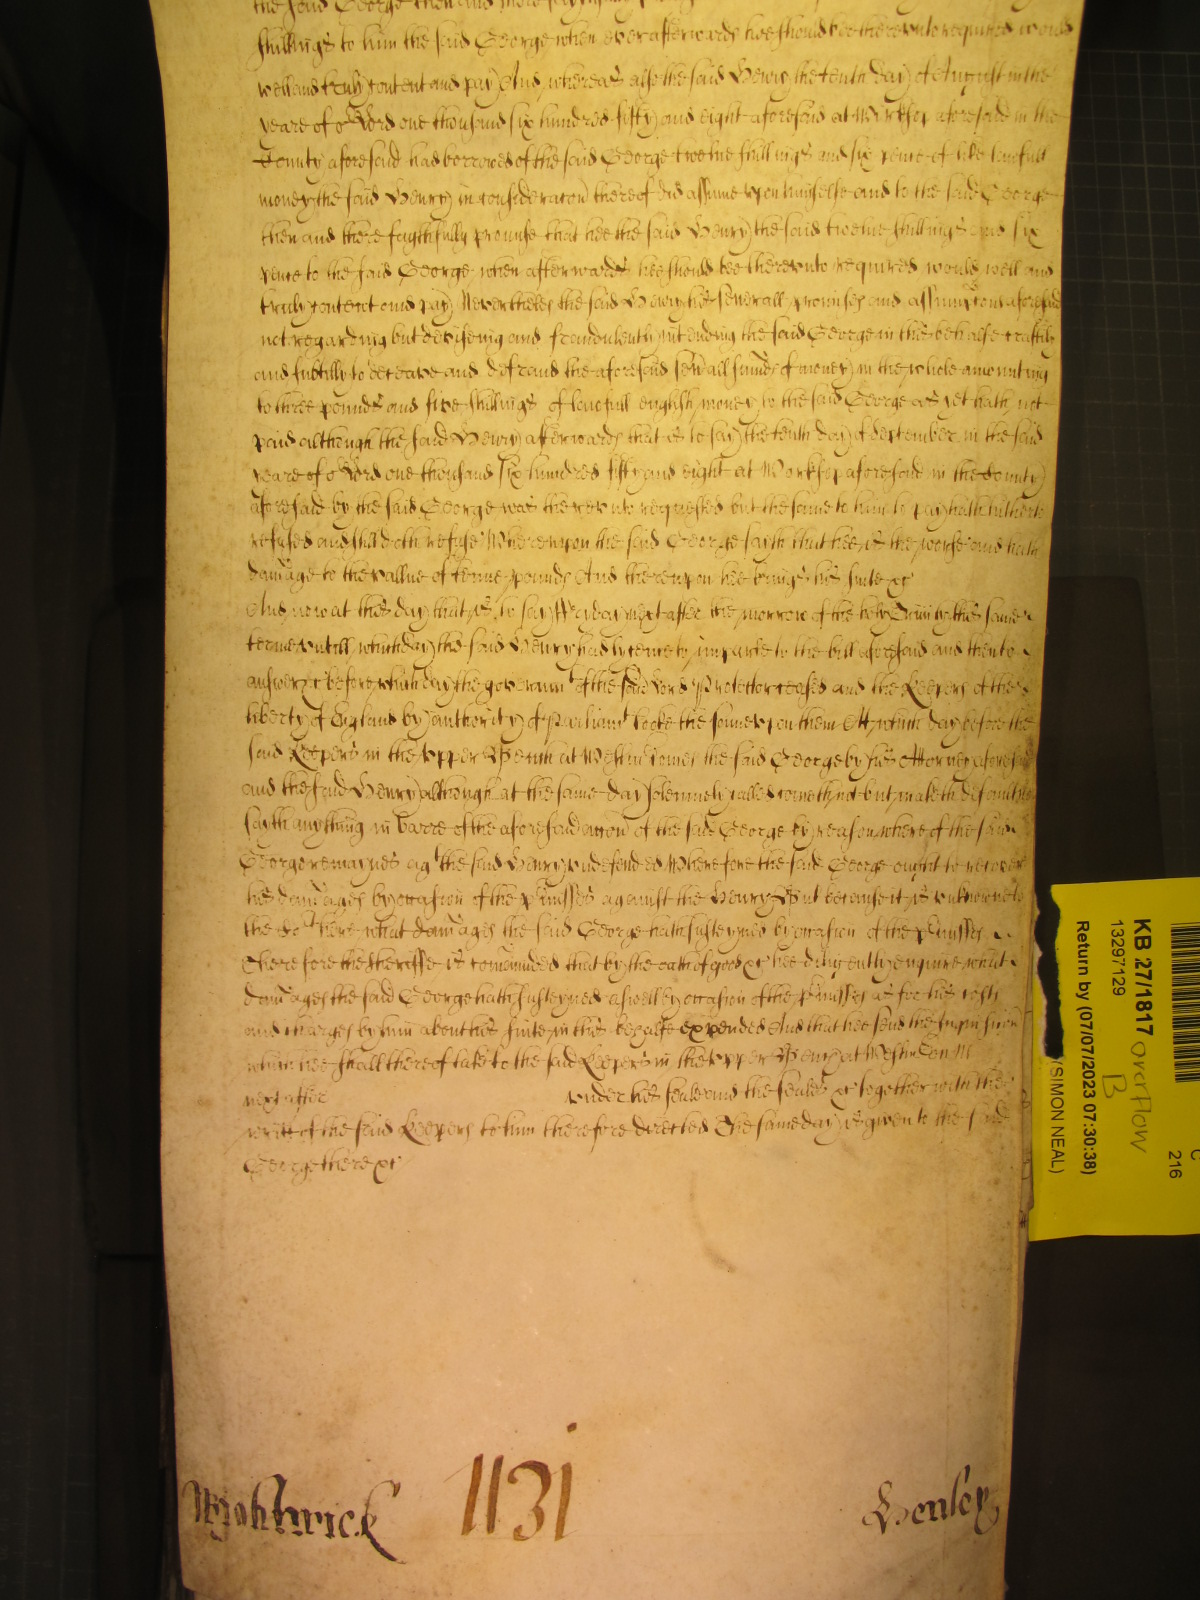 the said George then and
shillings to him the said George when ever afterwards hee should bee thereunto required would
well and truly content and pay And whereas alsoe the said Henry the tenth day of August in the
yeare of oʳ Lord one thousand six hundred fifty and eight aforesaid at Worksop aforesaid in the
County aforesaid had borrowed of the said George twelve shillings and six pence of like lawfull
money the said Henry in consideracon thereof did assume upon himselfe and to the said George
then and there faythfully promise that hee the said Henry the said twelve shillings and six
pence to the said George when afterwards hee should bee thereunto required would well and
truly content and pay Neverthelesse the said Henry his severall promises and assumpcons aforesaid
not regarding but deviseing and fraudulently intending the said George in this behalfe craftily
and subtilly to deceave and defraud the aforesaid sevʳall summes of money in the whole amounting
to three pounds and five shillings of lawfull english money to the said George as yet hath not
paid although the said Henry afterwards that is to say the tenth day of September in the said
yeare of oʳ Lord one thousand six hundred fifty and eight at Worksop aforesaid in the County
aforesaid by the said George was thereunto requested but the same to him to pay hath hitherto
refused and still doth refuse Whereupon the said George sayth that hee is the worse and hath
damage to the vallue of tenne pounds And thereupon hee brings his suite xc
And now at this day that is to say Fryday next after the morrow of the holy Trinity this same
terme untill which day the said Henry had lycence to imparle to the bill aforesaid and then to
answer xc before which day the governmᵗ of the said Lord Protector ceased and the Keepers of the
liberty of England by authority of Parliamᵗ tooke the same upon them Att which day before the
said Keepers in the upper Bench at Westmʳ comes the said George by his Attorney aforesaid
and the said Henry although at the same day solemnely called cometh not but maketh default nor
sayth anything in barre of the aforesaid accon of the said George by reason whereof the said
George remaynes agᵗ the said Henry undefended Wherefore the said George ought to recover
his damages by occasion of the pʳmisses against the Henry But because it is unknowne to
the Coᵗ here what damages the said George hath susteyned by occasion of the pʳmisses
Therefore the Sheriffe is comanded that by the oath of good xc hee diligently enquire what
damages the said George hath susteyned aswell by occasion of the pʳmisses as for his costs
and charges by him about his suite in this behalfe expended And that hee send the Inquisicion
which hee shall thereof take to the said Keepers in the upper Bench at Westmʳ on
next after under his seale and the seales xc together with the
writt of the said Keepers to him therefore directed The same day is given to the said
George there xc
Wightwick 1131 Henley
KB 27/1817 overflow
13297129 B
Return by (07/07/2023 07:30:38)
(SIMON NEAL)
216
C